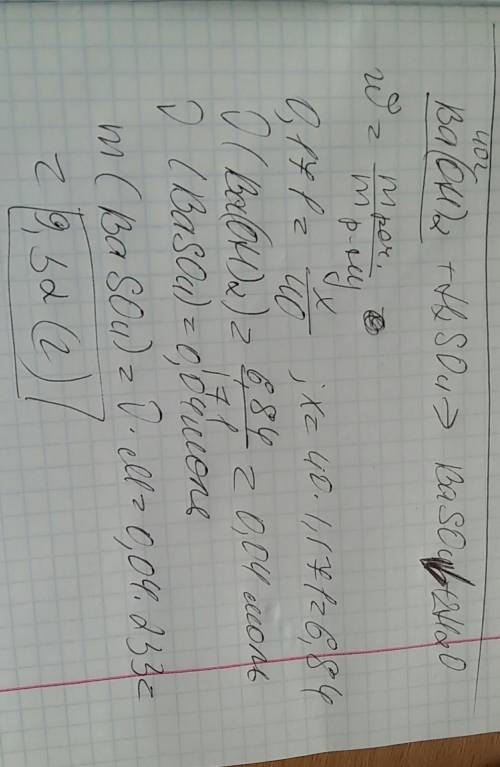 40г
Ba(OH)2 + H2SO4 → BaSO4↓ + 2H2O
ω = m р.в. / m р-ну
0,171 = x / 40 ; x = 40 · 1,171 = 6,84
ν (Ba(OH)2) = 6,84 / 171 = 0,04 моль
ν (BaSO4) = 0,04 моль
m (BaSO4) = ν · M = 0,04 · 233 =
= 9,32 (г)